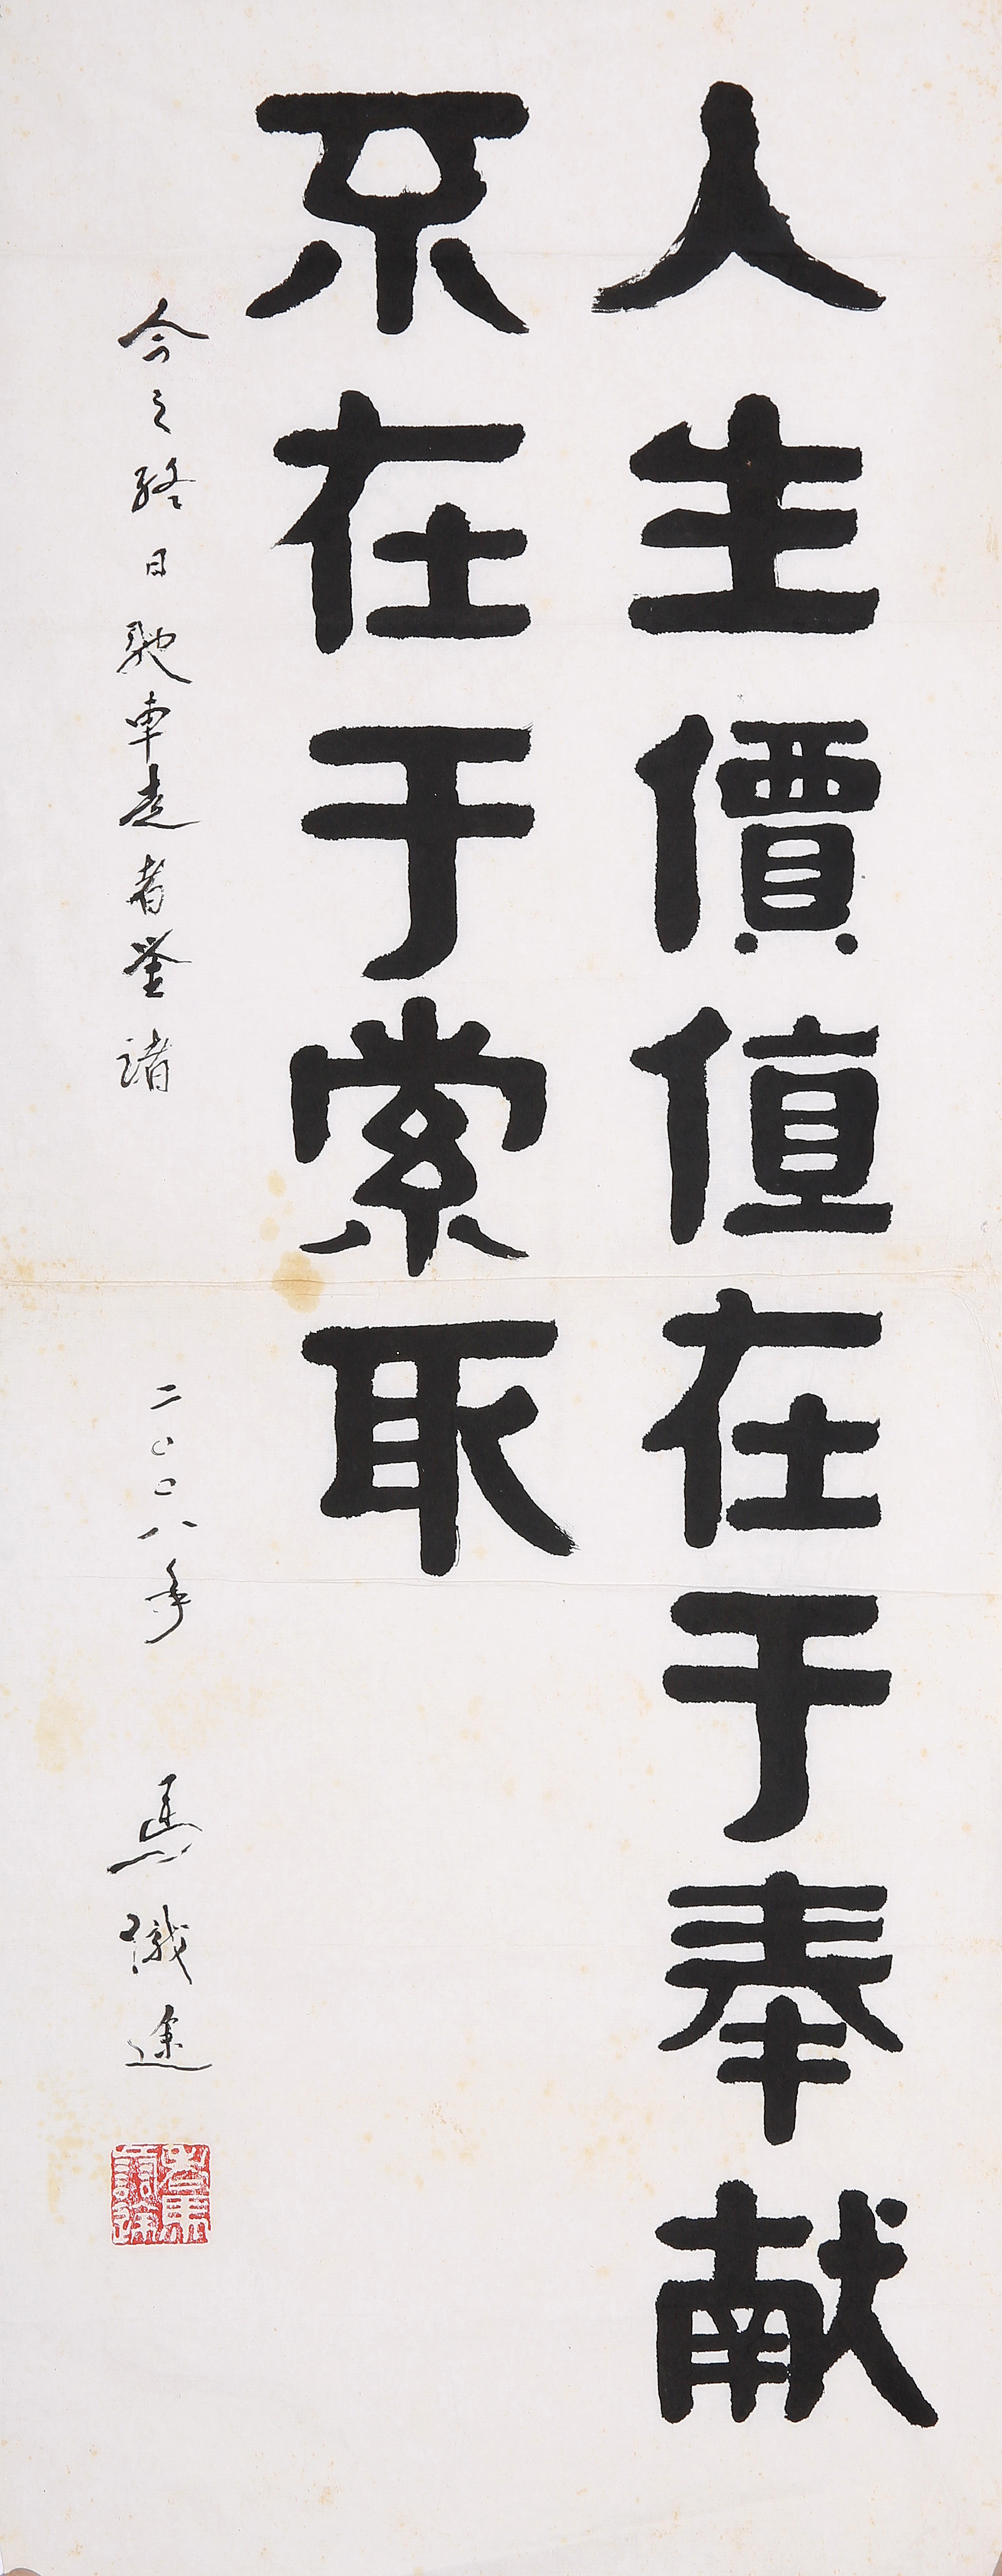 人生價值在于奉献
不在于索取
今之終日馳車走者鉴諸
二〇〇八年
馬識途